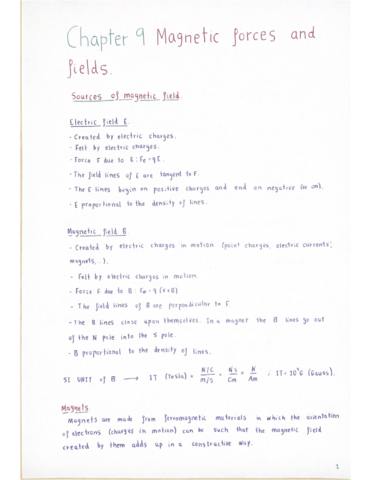 Chapter 9 Magnetic forces and
fields.
Sources of magnetic field.
Electric field E.
- Created by electric charges.
- Felt by electric charges.
- Force F due to E: F_E = qE.
- The field lines of E are tangent to F.
- The E lines begin on positive charges and end on negative (or ∞).
- E proportional to the density of lines.
Magnetic field B.
- Created by electric charges in motion (point charges, electric currents,
magnets,...).
- Felt by electric charges in motion
- Force F due to B: F_M = q (v×B)
- The field lines of B are perpendicular to F.
- The B lines close upon themselves. In a magnet the B lines go out
of the N pole into the S pole.
- B proportional to the density of lines.
SI UNIT of B → 1T (Tesla) = N/C / m/s = N s / C m = N / A m ; 1T = 10⁴ G (Gauss).
Magnets
Magnets are made from ferromagnetic materials in which the orientation
of electrons (charges in motion) can be such that the magnetic field
created by them adds up in a constructive way.
1